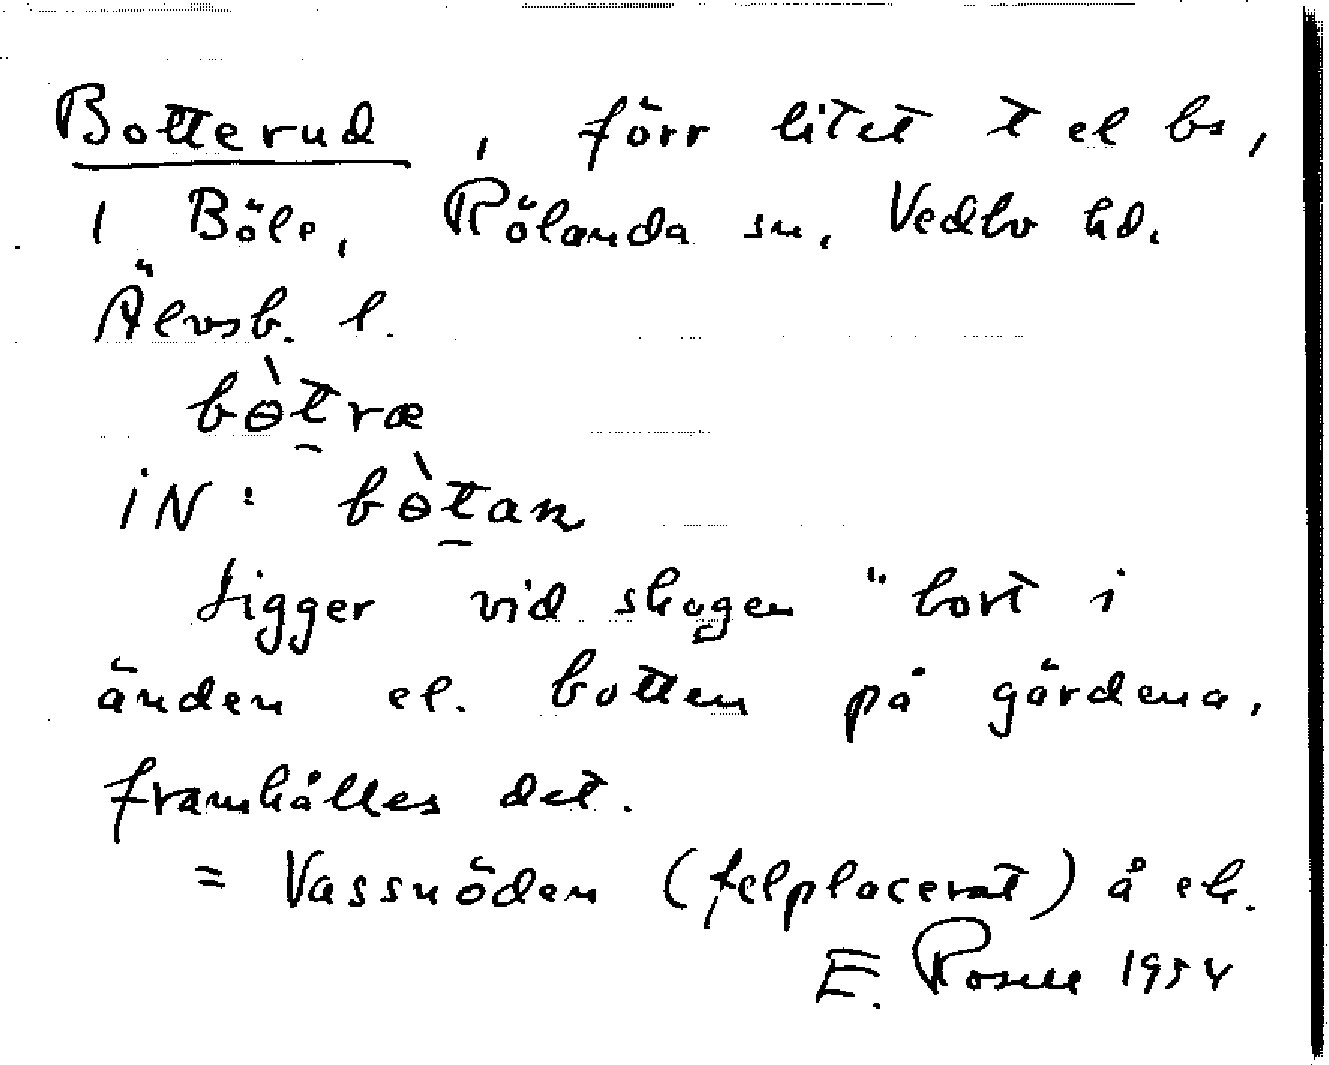 Botterud, förr litet t el bs,
i Böle, Rölanda sn, Vedbo hd.
Älvsb. l.
bɵ̀træ
iN: bɵ̀tan
Ligger vid skogen "bort i
änden el. botten på gärdena,
framhålles det.
= Vassnöden (felplacerat) å ek.
E. Rosell 1954